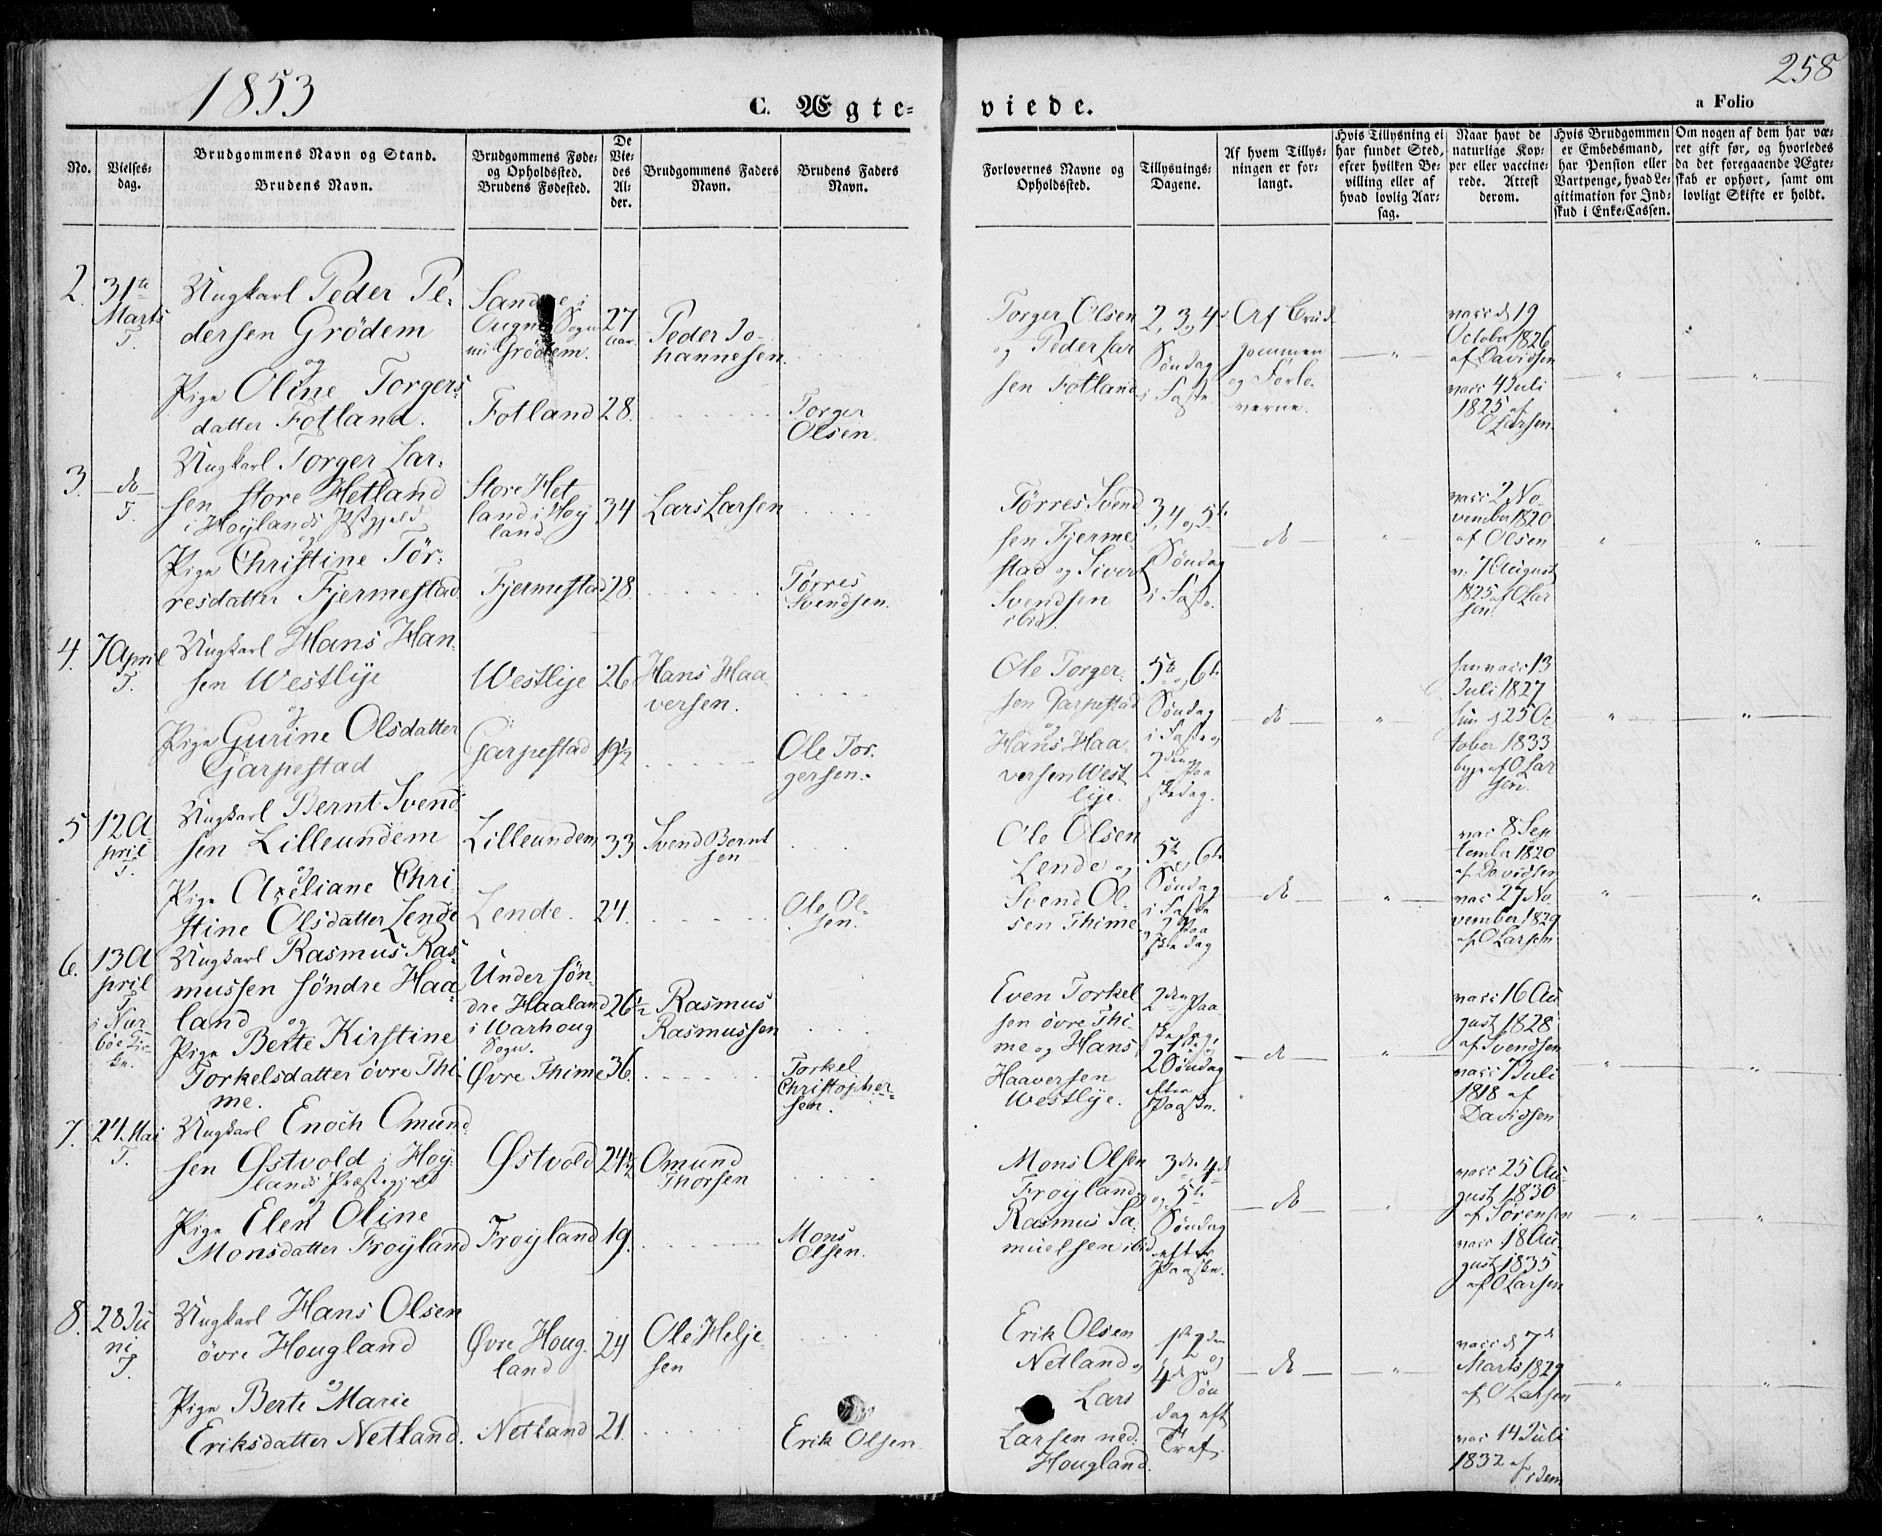 1853
258
C. Ægte=
viede.
a Folio
No.
Vielses-
dag.
Brudgommens Navn og Stand.
Brudens Navn.
Brudgommens Føde-
og Opholdssted.
Brudens Fødested.
De
Vie-
des
Al-
der.
Brudgommens Faders
Navn.
Brudens Faders
Navn.
Forlovernes Navne og
Opholdssted.
Tillysnings-
Dagene.
Af hvem Tillys-
ningen er for-
langt.
Hvis Tillysning ei
har fundet Sted,
efter hvilken Be-
villing eller af
hvad lovlig Aar-
sag.
Naar havt de
naturlige Kop-
per eller vaccine-
rede. Attest
derom.
Hvis Brudgommen
er Embedsmand,
har Pension eller
Vartpenge, hvad Le-
gitimation for Ind-
skud i Enke-Cassen.
Om nogen af dem har væ-
ret gift før, og hvorledes
da det foregaaende Ægte-
skab er ophørt, samt om
lovligt Skifte er holdt.
2.
31te
Marts
T.
Ungkarl Peder Pe-
dersen Grödem
og
Pige Oline Torgers-
datter Fotland.
Ougne Sogn
Grödem.
Fotland
27
Aar.
28.
Peder Jo-
hannesen.
Torger
Olsen.
Torger Olsen
og Peder Lar
sen Fotland
2, 3 og 4de
Söndag
i Faste.
Af Brud
gommen
og Forlo-
verne.
"
vacc d 19
October 1826
af Davidsen
vacc 4 Juli
1825 af
O Larsen.
3.
do
T.
Ungkarl Torger Lar-
sen store Hetland
i Höylands Pstgjeld
og
Pige Christine Tör-
resdatter Fjermestad
Store Het
land i Höy
land
Fjermestad
34
28
Lars Larsen
Törres
Svendsen.
Törres Svend
sen Fjerme-
stad og Sivert
Svendsen
ibid.
3, 4 og 5te
Söndag
i Faste.
do
"
vacc 2 No
vember 1820
af Olsen
v. 7 August
1825 af O Lar
sen.
4.
7 April
T.
Ungkarl Hans Han-
sen Westlye
og
Pige Gurine Olsdatter
Garpestad
Westlye
Garpestad
26
19½
Hans Haa
versen.
Ole Tor-
gersen.
Ole Torger-
sen Garpestad
og
Hans Haa-
versen West
lye.
5te og 6te
Söndag
i Faste og
2den Paa
skedag.
do
"
han vacc 13
Juli 1827
hun d 25 Oc
tober 1833
begge af O Lar
sen.
5
12 A
pril
T.
Ungkarl Bernt Svend
sen Lilleundem
og
Pige Axeliane Chri-
stine Olsdatter Lende
Lilleundem
Lende.
33
24.
Svend Bernt
sen
Ole Ol-
sen.
Ole Olsen
Lende og
Svend Ol-
sen Thime
5te og 6te
Söndag
i Faste
og 2 Paa
skedag
do
"
vac 8 Sep
tember 1820
af Davidsen
vac 27 No
vember 1829
af O Larsen
6.
13 A
pril
T.
i Nær
böe Kir-
ke.
Ungkarl Rasmus Ras-
mussen söndre Haa-
land og
Pige Berte Kirstine
Torkelsdatter övre Thi-
me.
Under sön-
dre Haaland
i Warhoug
Sogn.
Övre Thime
26½
36.
Rasmus
Rasmussen
Torkel
Christopher-
sen.
Even Torkel
sen övre Thi-
me og Hans
Haaversen
Westlye.
2den Paa-
skedag,
2 Söndag
efter
Paaske.
do
"
vacc 16 Au
gust 1828
af Svendsen
vacc 7 Juli
1818 af
Davidsen
7.
24 Mai
T.
Ungkarl Enoch Omund
sen Östvold i Höy
lands Præstegjeld
og
Pige Elen Oline
Monsdatter Fröyland
Östvold
Fröyland
24½
19.
Omund
Thorsen
Mons
Olsen.
Mons Olsen
Fröyland og
Rasmus Sa-
muelsen ibid
3de 4de
og 5te
Söndag
efter
Paaske.
do
"
vacc 25 Au-
gust 1830
af Sörensen
vacc 18 Au-
gust 1835
af O Larsen
8.
28 Ju
ni
T.
Ungkarl Hans Olsen
övre Hougland
og
Pige Berte Marie
Eriksdatter Netland.
Övre Houg-
land
Netland
24
21.
Ole Helje-
sen
Erik Olsen.
Erik Olsen
Netland og
Lars
Larsen ned.
Hougland.
1ste 2den og
4de Sön
dag eft
Tref.
do
"
vacc d 7de
Marts 1829
af O Larsen
vac 14 Juli
1832 af
idem